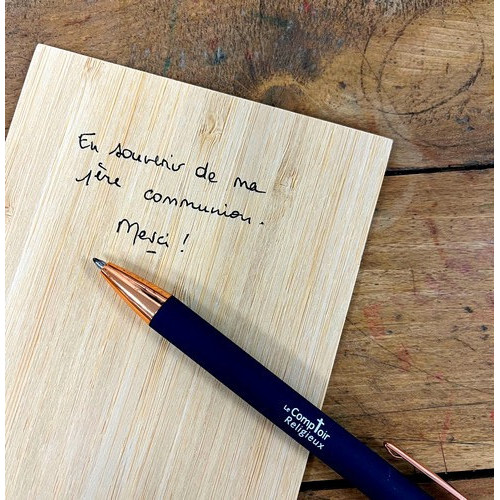 En souvenir de ma
1ère communion.
Merci !
Le Comptoir
Religieux